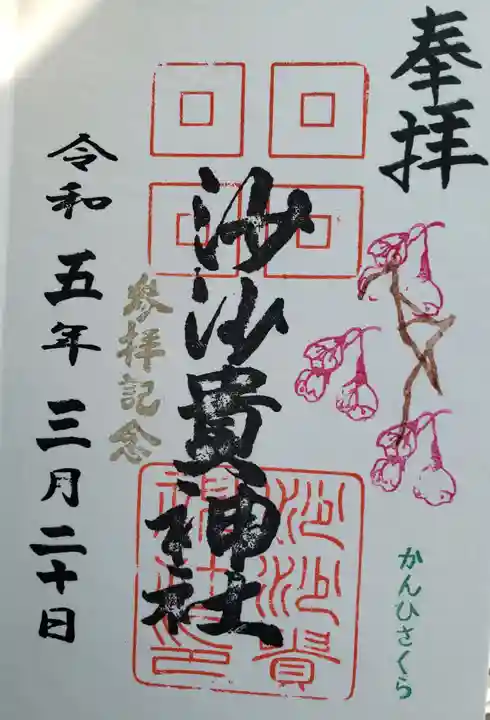 奉拝
かんひさくら
沙沙貴神社
沙沙貴
神社印
参拝記念
令和五年三月二十日